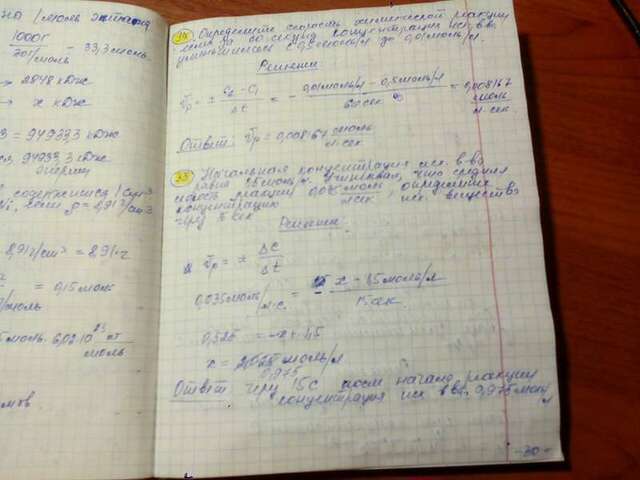 1 моль этанола
1000г
= 33,3 моль
→ 2848 кДж
→ x кДж
= 94933,3 кДж
94933,3 кДж
содержится 1 см³
если ρ = 2,91 г/см³
2,91 г/см³ = 2,91 г
= 0,15 моль
г/моль
моль · 6,02·10²³
моль
Определите скорость химической реакции
если за 60 секунд концентрация исх. в-ва
уменьшилась с 0,5 моль/л до 0,01 моль/л.
Решение
C₂ - C₁
Δt
= -
0,01 моль/л - 0,5 моль/л
60 сек
= 0,008167
моль
л·сек
Ответ: = 0,008167 моль
л·сек
33 Начальная концентрация исх. в-ва
равна моль/л. что средняя
скорость реакции 0,035 моль/л·сек, определите
концентрацию исх. вещества
через 15 сек
Решение
= ± ΔC
Δt
0,035 моль/л·с. = - x - 1,5 моль/л
15 сек
0,525 = -x + 1,5
x = моль/л
0,975
Ответ: через 15 с после начала реакции
концентрация исх в-ва 0,975 моль/л
-30-